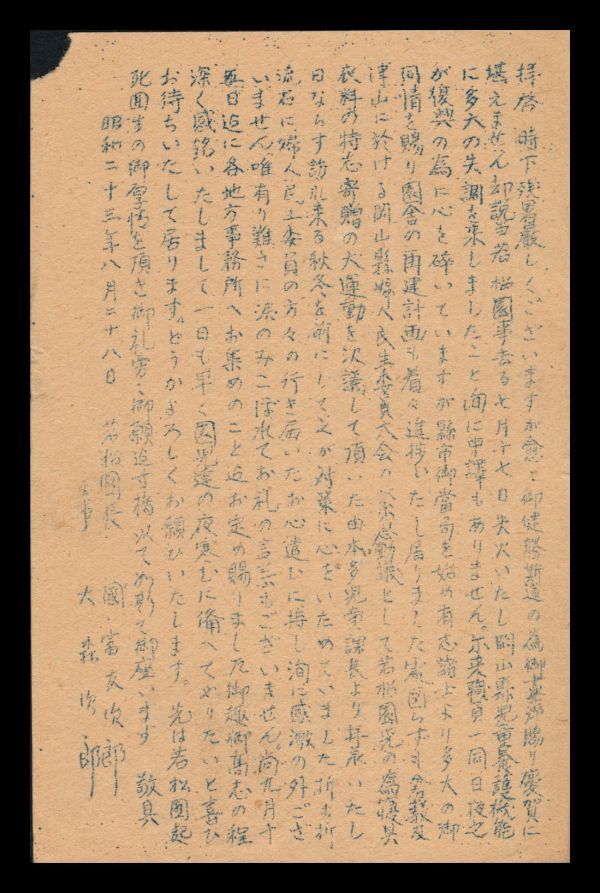 拝啓 時下残暑厳しくございますが愈々御健勝斯道の為御専念賜り慶賀に
堪えません 却説当若松園事去る七月十七日失火いたし岡山縣児童養護機能
に多大の失調を来しましたこと洵に申譯もありません。尓来職員一同日夜之
が復興の為に心を砕いていますが縣市御當局を始め有志諸士より多大の御
同情を賜り園舎の再建計画も着々進捗いたし居りました處図らずも倉敷及
津山に於ける岡山縣婦人民生委員大会の緊急動議として若松園児の為寝具
衣料の特志寄贈の大運動を決議して頂いた由本多児童課長より拝承いたし
日ならず訪れ来る秋冬を前にして之が対策に心をいためていました折も折
流石に婦人民生委員の方々の行き届いたお心遣ひに接し洵に感激の外ござ
いません唯有り難さに涙のみこぼれてお礼の言葉もございません。尚九月十
五日迄に各地方事務所へお集めのこと迄お定め賜りました御趣御高志の程
深く感銘いたしまして一日も早く園児達の夜寒むに備へてやりたいと喜び
お待ちいたして居ります。どうかよろしくお願ひいたします。先は若松園起
死回生の御厚情を頂き御礼旁々御願迄寸楮以て如斯で御座います 敬具
昭和二十三年八月二十八日
若松園長 國富友次郎
主事 大森次郎